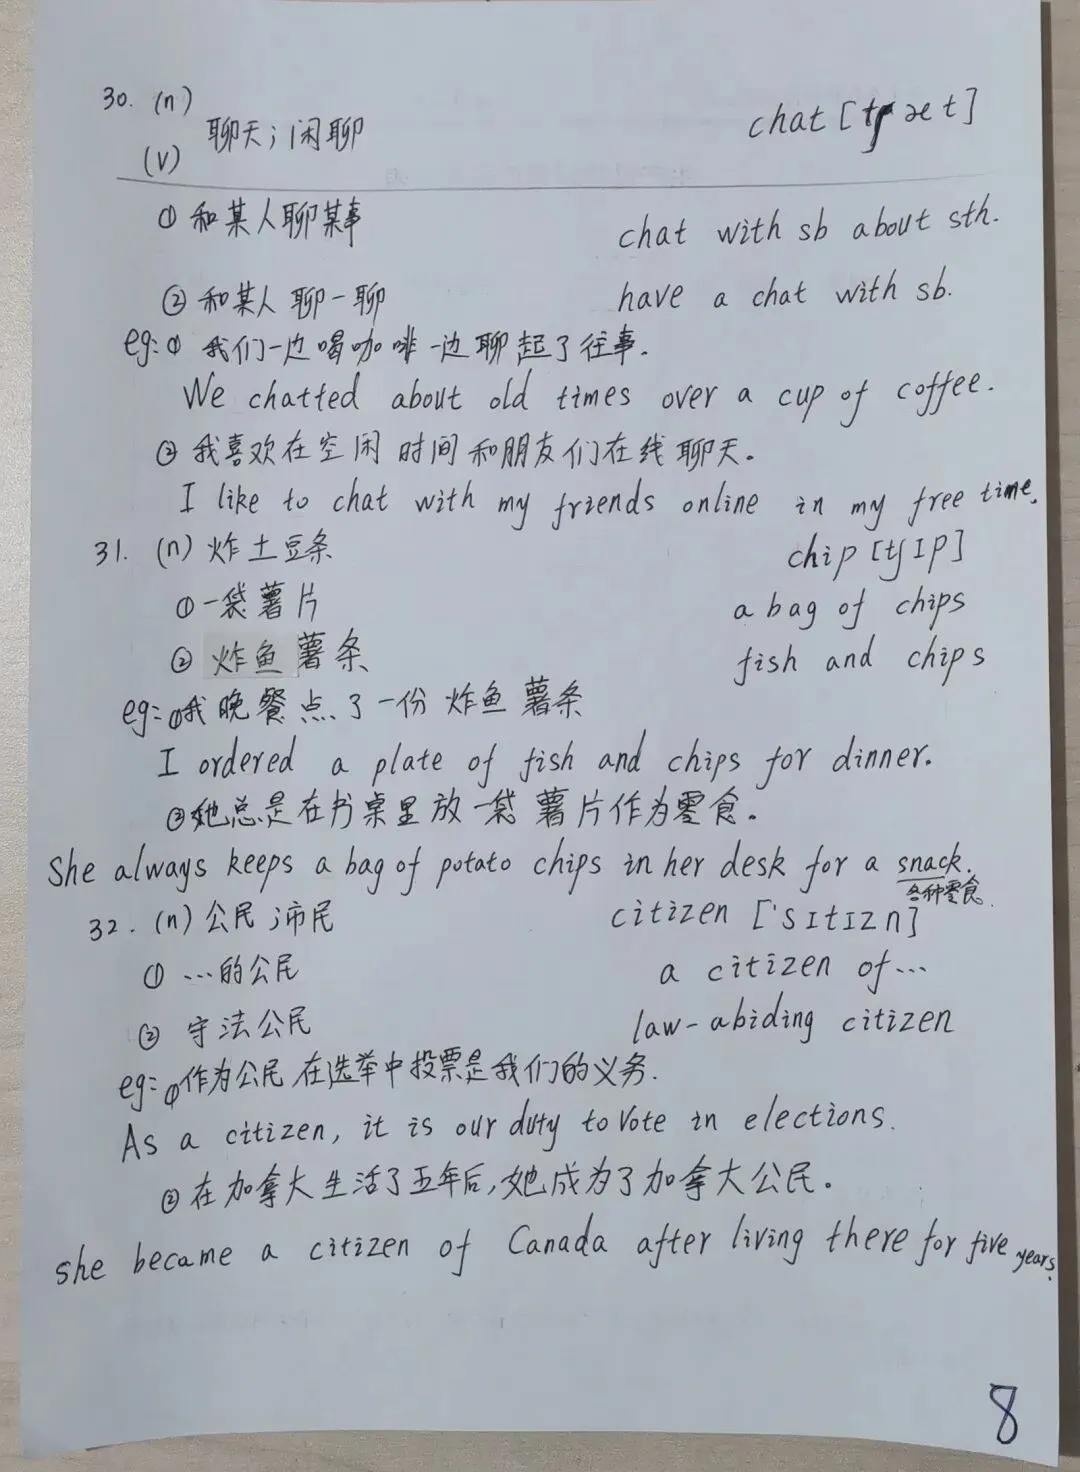 30. (n)
聊天；闲聊 chat [tʃæt]
(v)
① 和某人聊某事 chat with sb about sth.
② 和某人聊一聊 have a chat with sb.
eg: ① 我们一边喝咖啡一边聊起了往事.
We chatted about old times over a cup of coffee.
② 我喜欢在空闲时间和朋友们在线聊天。
I like to chat with my friends online in my free time.
31. (n) 炸土豆条 chip [tʃIP]
① 一袋薯片 a bag of chips
② 炸鱼薯条 fish and chips
eg: ①我晚餐点了一份炸鱼薯条
I ordered a plate of fish and chips for dinner.
②她总是在书桌里放一袋薯片作为零食。
She always keeps a bag of potato chips in her desk for a snack.
各种零食
32. (n) 公民；市民 citizen ['sItIzn]
① …的公民 a citizen of…
② 守法公民 law-abiding citizen
eg: ①作为公民在选举中投票是我们的义务.
As a citizen, it is our duty to vote in elections.
②在加拿大生活了五年后,她成为了加拿大公民。
she became a citizen of Canada after living there for five years.
8